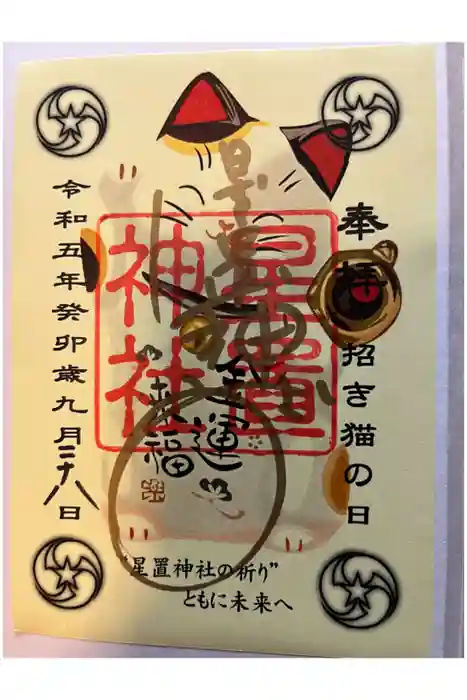 奉拝
招き猫の日
星置神社
星置神社
金運
来福
令和五年癸卯歳九月二十八日
"星置神社の祈り"
ともに未来へ